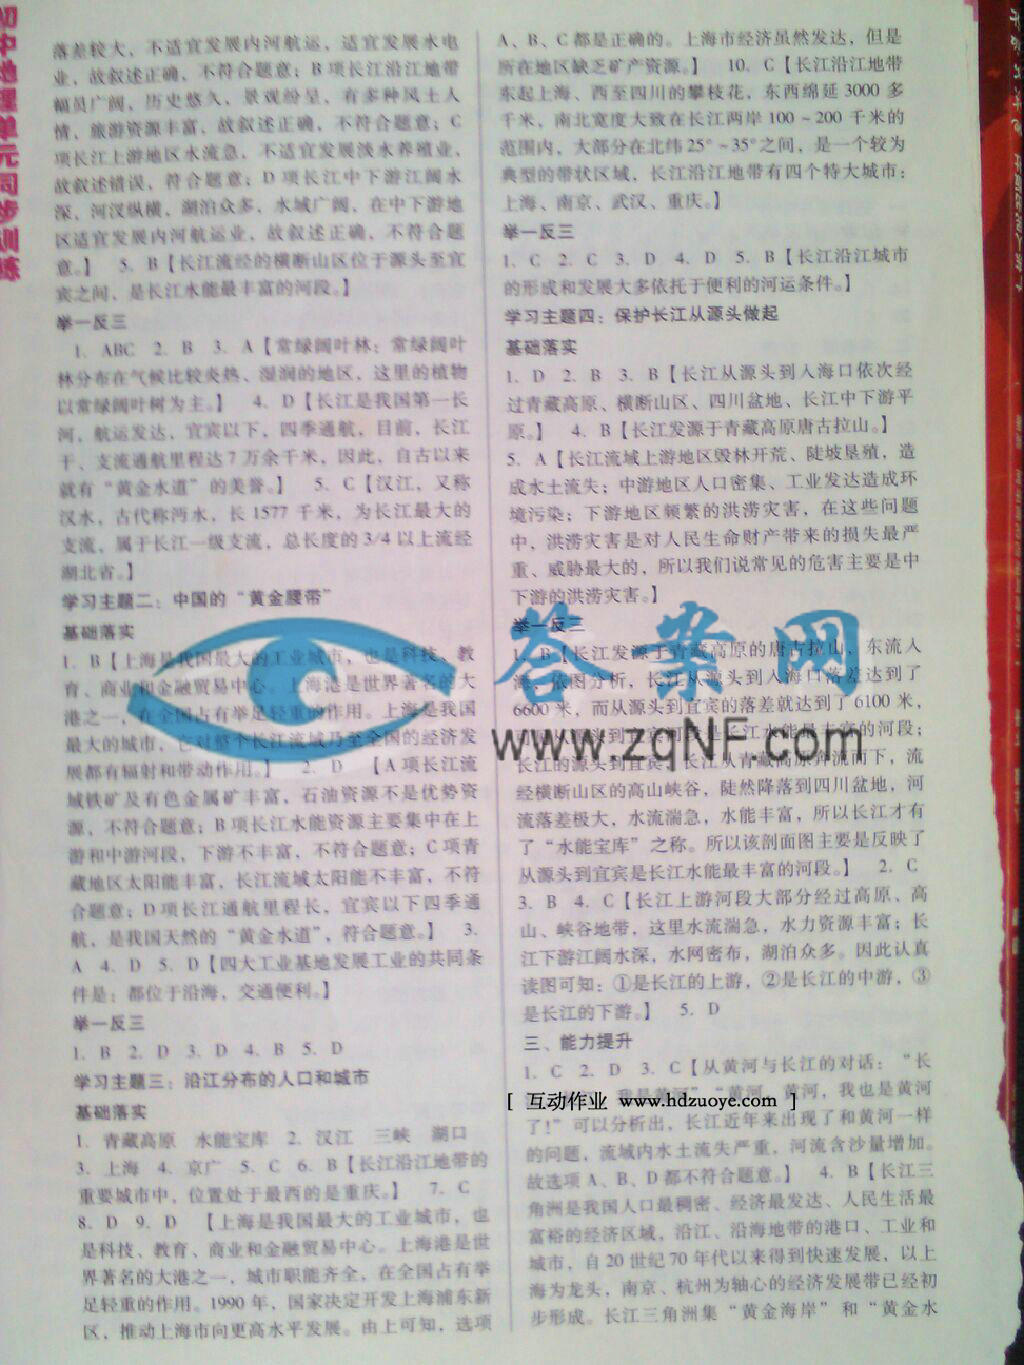 初中地理单元同步训练
落差较大，不适宜发展内河航运，适宜发展水电
业，故叙述正确，不符合题意；B项长江沿江地带
幅员广阔，历史悠久，景观纷呈，有多种风土人
情，旅游资源丰富，故叙述正确，不符合题意；C
项长江上游地区水流急，不适宜发展淡水养殖业，
故叙述错误，符合题意；D项长江中下游江阔水
深，河汊纵横，湖泊众多，水域广阔，在中下游地
区适宜发展内河航运业，故叙述正确，不符合题
意。】 5. B【长江流经的横断山区位于源头至宜
宾之间，是长江水能最丰富的河段。】
举一反三
1. ABC 2. B 3. A【常绿阔叶林：常绿阔叶
林分布在气候比较炎热、湿润的地区，这里的植物
以常绿阔叶树为主。】 4. D【长江是我国第一长
河，航运发达，宜宾以下，四季通航，目前，长江
干、支流通航里程达7万余千米，因此，自古以来
就有“黄金水道”的美誉。】 5. C【汉江，又称
汉水，古代称沔水，长1577千米，为长江最大的
支流，属于长江一级支流，总长度的3/4以上流经
湖北省。】
学习主题二：中国的“黄金腰带”
基础落实
1. B【上海是我国最大的工业城市，也是科技、教
育、商业和金融贸易中心。上海港是世界著名的大
港之一，在全国占有举足轻重的作用。上海是我国
最大的城市，它对整个长江流域乃至全国的经济发
展都有辐射和带动作用。】 2. D 【A项长江流
域铁矿及有色金属矿丰富，石油资源不是优势资
源，不符合题意；B项长江水能资源主要集中在上
游和中游河段，下游不丰富，不符合题意；C项青
藏地区太阳能丰富，长江流域太阳能不丰富，不符
合题意；D项长江通航里程长，宜宾以下四季通
航，是我国天然的“黄金水道”，符合题意。】 3.
A 4. D 5. D【四大工业基地发展工业的共同条
件是：都位于沿海，交通便利。】
举一反三
1. B 2. D 3. D 4. B 5. D
学习主题三：沿江分布的人口和城市
基础落实
1. 青藏高原 水能宝库 2. 汉江 三峡 湖口
3. 上海 4. 京广 5. C 6. B【长江沿江地带的
重要城市中，位置处于最西的是重庆。】 7. C
8. D 9. D 【上海是我国最大的工业城市，也
是科技、教育、商业和金融贸易中心。上海港是世
界著名的大港之一，城市职能齐全，在全国占有举
足轻重的作用。1990年，国家决定开发上海浦东新
区，推动上海市向更高水平发展。由上可知，选项
A、B、C都是正确的。上海市经济虽然发达，但是
所在地区缺乏矿产资源。】 10. C【长江沿江地带
东起上海、西至四川的攀枝花，东西绵延3000多
千米，南北宽度大致在长江两岸100～200千米的
范围内，大部分在北纬25°～35°之间，是一个较为
典型的带状区域，长江沿江地带有四个特大城市：
上海、南京、武汉、重庆。】
举一反三
1. C 2. C 3. D 4. D 5. B【长江沿江城市
的形成和发展大多依托于便利的河运条件。】
学习主题四：保护长江从源头做起
基础落实
1. D 2. B 3. B【长江从源头到入海口依次经
过青藏高原、横断山区、四川盆地、长江中下游平
原。】 4. B【长江发源于青藏高原唐古拉山。】
5. A【长江流域上游地区毁林开荒、陡坡垦殖，造
成水土流失；中游地区人口密集、工业发达造成环
境污染；下游地区频繁的洪涝灾害，在这些问题
中，洪涝灾害是对人民生命财产带来的损失最严
重、威胁最大的，所以我们说常见的危害主要是中
下游的洪涝灾害。】
举一反三
1. B【长江发源于青藏高原的唐古拉山，东流入
海，依图分析，长江从源头到入海口落差达到了
6600米，而从源头到宜宾的落差就达到了6100米，
可见从源头到宜宾河段是长江水能最丰富的河段；
长江的源头到宜宾，长江从青藏高原奔流而下，流
经横断山区的高山峡谷，陡然降落到四川盆地，河
流落差极大，水流湍急，水能丰富，所以长江才有
了“水能宝库”之称。所以该剖面图主要是反映了
从源头到宜宾是长江水能最丰富的河段。】 2. C
3. B 4. C【长江上游河段大部分经过高原、高
山、峡谷地带，这里水流湍急，水力资源丰富；长
江下游江阔水深，水网密布，湖泊众多。因此认真
读图可知：①是长江的上游，②是长江的中游，③
是长江的下游。】 5. D
三、能力提升
1. C 2. D 3. C【从黄河与长江的对话：“长
我是黄河”“黄河，黄河，我也是黄河
了！”可以分析出，长江近年来出现了和黄河一样
的问题，流域内水土流失严重，河流含沙量增加。
故选项A、B、D都不符合题意。】 4. B【长江三
角洲是我国人口最稠密、经济最发达、人民生活最
富裕的经济区域，沿江、沿海地带的港口、工业和
城市，自20世纪70年代以来得到快速发展，以上
海为龙头，南京、杭州为轴心的经济发展带已经初
步形成。长江三角洲集“黄金海岸”和“黄金水
答案网
www.zqNF.com
[ 互动作业 www.hdzuoye.com ]